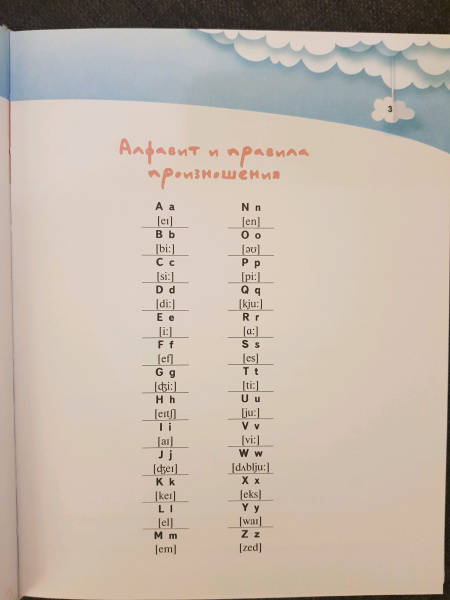 3
Алфавит и правила
произношения
A a
[eɪ]
B b
[biː]
C c
[siː]
D d
[diː]
E e
[iː]
F f
[ef]
G g
[ʤiː]
H h
[eɪtʃ]
I i
[aɪ]
J j
[ʤeɪ]
K k
[keɪ]
L l
[el]
M m
[em]
N n
[en]
O o
[əʊ]
P p
[piː]
Q q
[kjuː]
R r
[ɑː]
S s
[es]
T t
[tiː]
U u
[juː]
V v
[viː]
W w
[dʌbljuː]
X x
[eks]
Y y
[waɪ]
Z z
[zed]